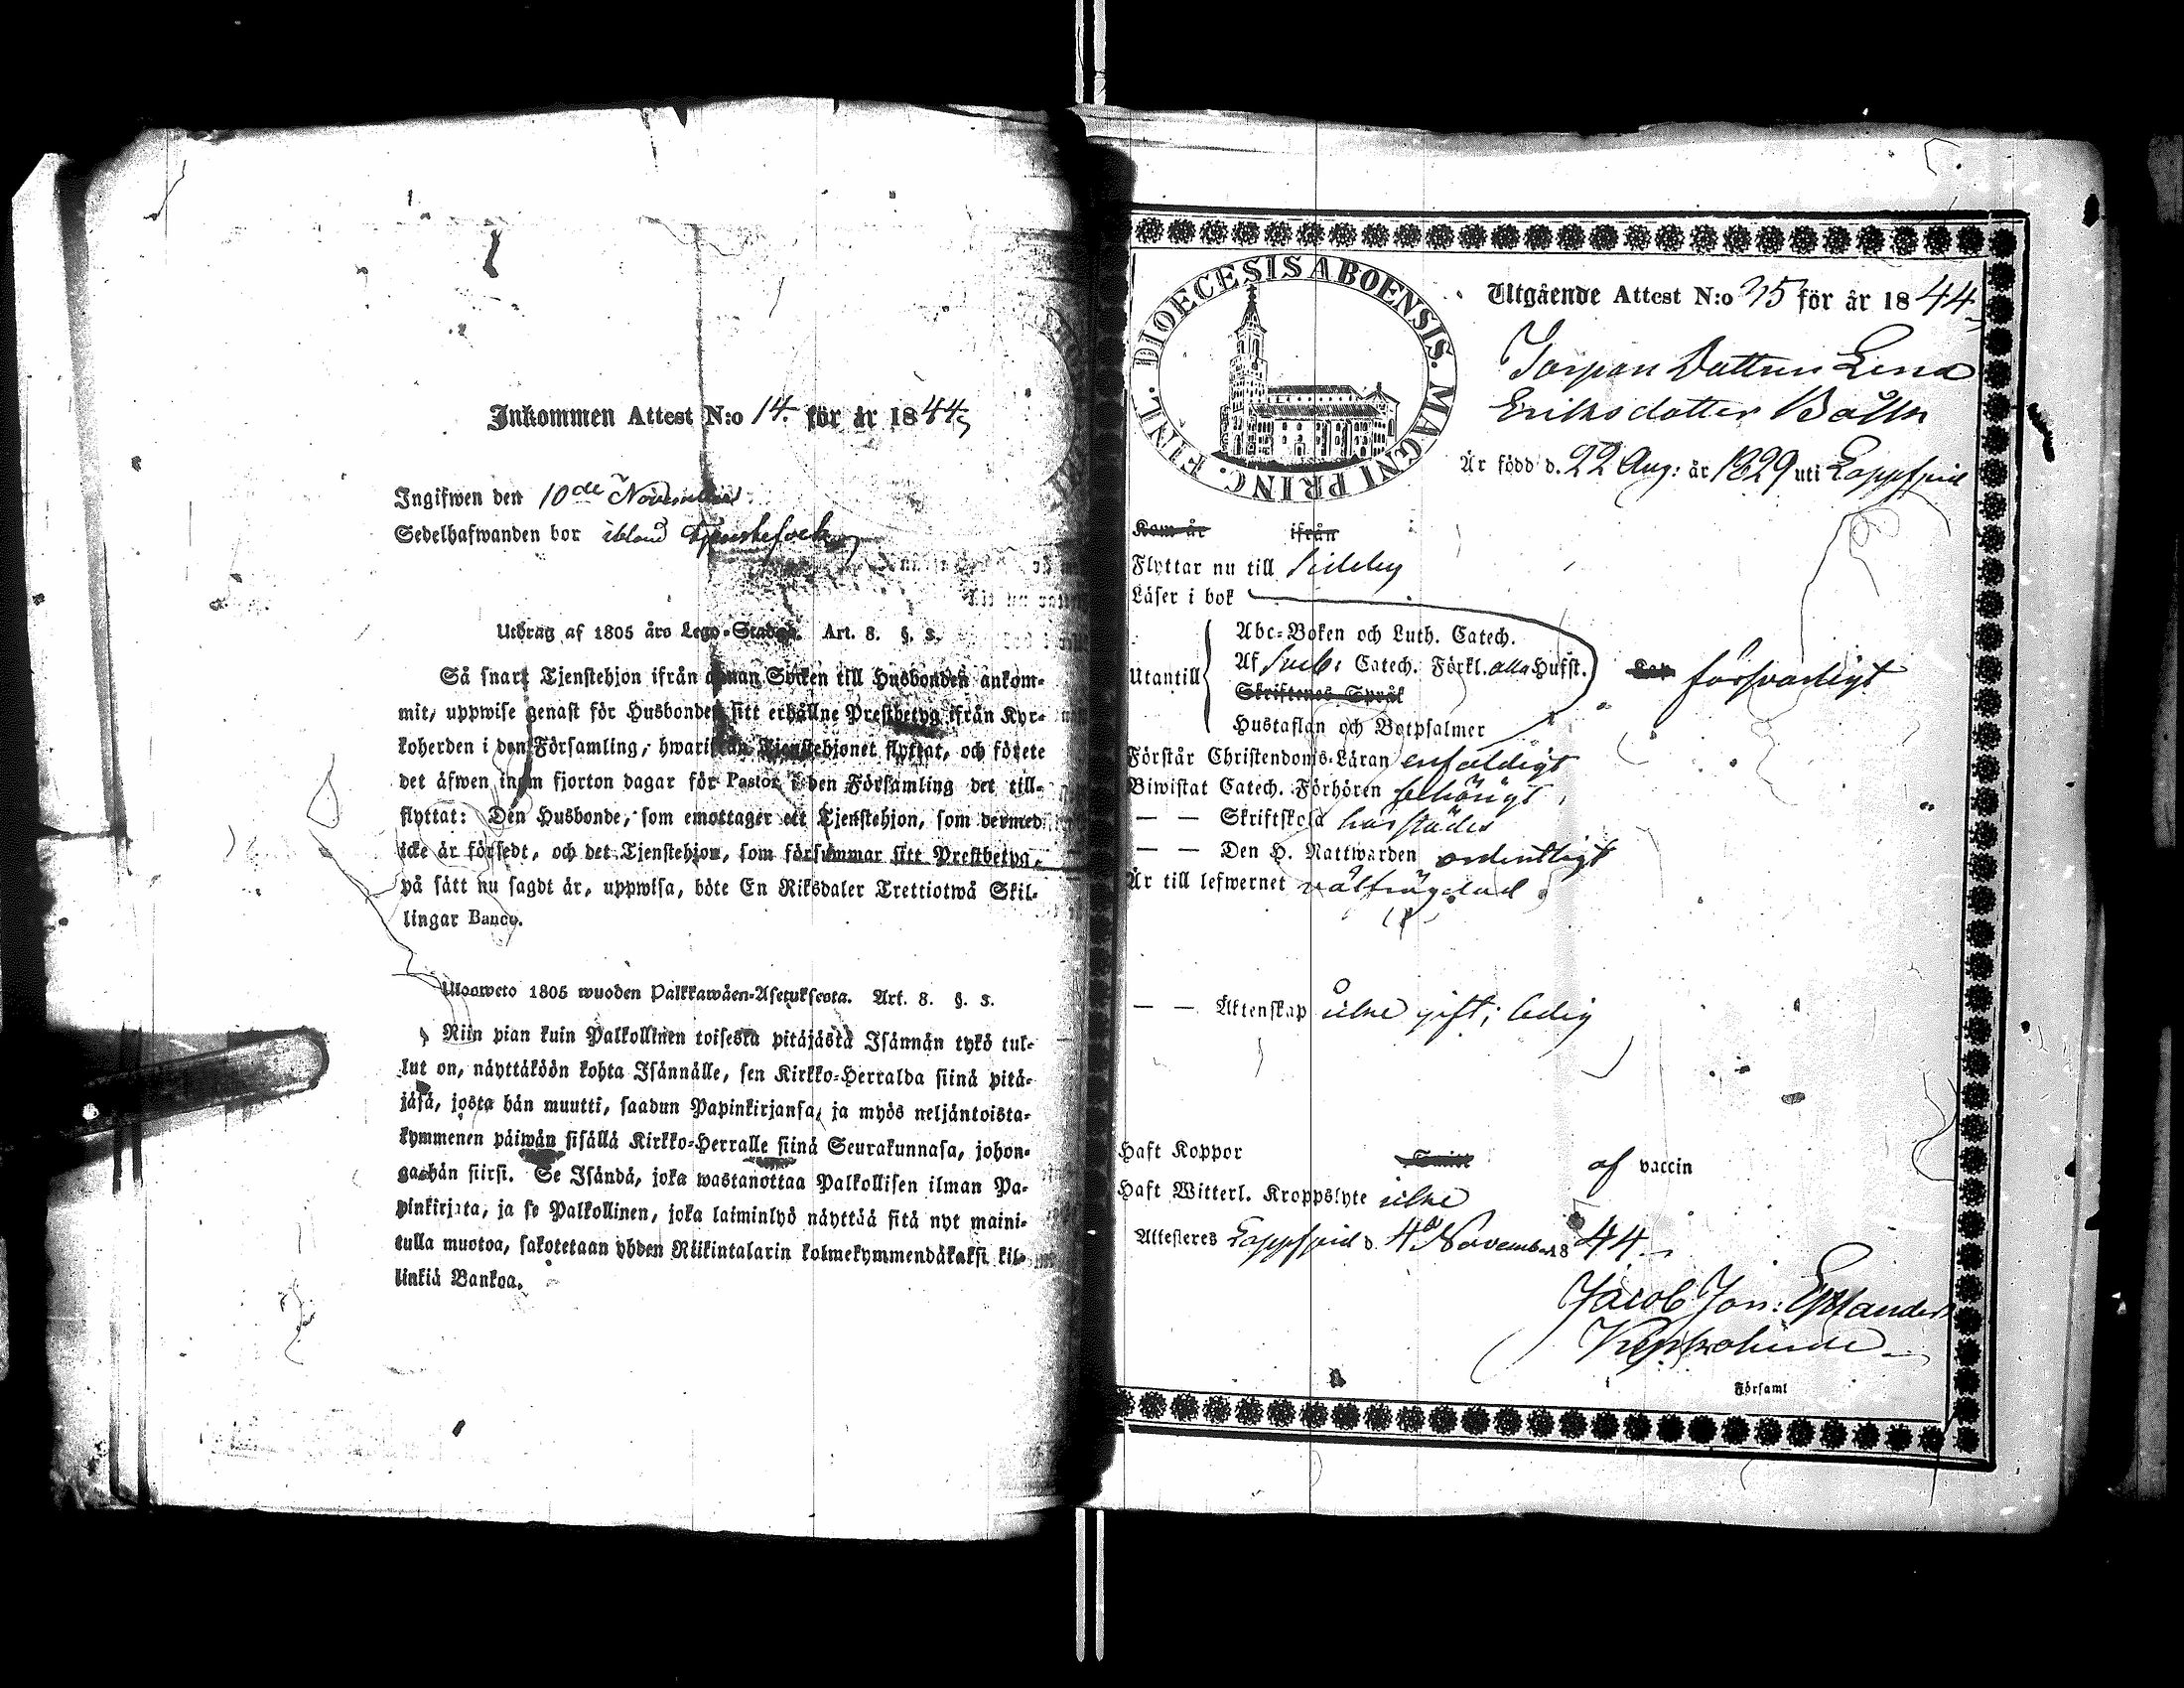 Inkommen Attest N:o 14. för år 1844
Ingifwen den 10de November
Sedelhafwanden bor ibland Tjenstefolk
Utdrag af 1805 års Lego-Stadga. Art. 8. §. 5.
Så snart Tjenstehjon ifrån annan Socken till Husbonden ankom-
mit, uppwise genast för Husbonden sitt erhållne Prestbetyg ifrån Kyr-
koherden i den Församling, hwarifrån Tjenstehjonet flyttat, och förete
det äfwen inom fjorton dagar för Pastor i den Församling det till-
flyttat: Den Husbonde, som emottager ett Tjenstehjon, som dermed
icke är försedt, och det Tjenstehjon, som försummar sitt Prestbetyg,
på sätt nu sagdt är, uppwisa, böte En Riksdaler Trettiotwå Skil-
lingar Banco.
Uloosweto 1805 wuoden Palkkawäen-Asetuksesta. Art. 8. §. 5.
Niin pian kuin Palkollinen toisesta pitäjästä Isännän tykö tul-
lut on, näyttäköön kohta Isännälle, sen Kirkko-Herralda siinä pitä-
jäsä, josta hän muutti, saadun Papinkirjansa, ja myös neljäntoista-
kymmenen päiwän sisällä Kirkko-Herralle siinä Seurakunnasa, johon-
ga hän siirsi. Se Isändä, joka wastanottaa Palkollisen ilman Pa-
pinkirjata, ja se Palkollinen, joka laiminlyö näyttää sitä nyt maini-
tulla muotoa, sakotetaan yhden Riikintalarin kolmekymmendäkaksi kil-
linkiä Bankoa.
DIOECESIS ABOENSIS. MAGNI PRINC. FINL.
Utgående Attest N:o 35 för år 1844
Dottren Lena
Eriksdotter Bålk
Är född d. 22 Aug: år 1829 uti Lappfjerd
Kom år ifrån
Flyttar nu till Sideby
Läser i bok
Abc-Boken och Luth. Catech.
Utantill Af Sveb: Catech. Förkl. alla Hufst. försvarligt
Skriftenes Språk
Hustaflan och Botpsalmer
Förstår Christendoms-Läran enfaldigt
Biwistat Catech. Förhören behörigt
— — Skriftskola härstädes
— — Den H. Nattwarden ordentligt
Är till lefwernet välfrägdad
— — Äktenskap icke gift; ledig
Haft Koppor af vaccin
Haft Witterl. Kroppslyte icke
Attesteres Lappfjerd d. 4 November 1844
Jacob Jon:
Kyrkoherde
Församl